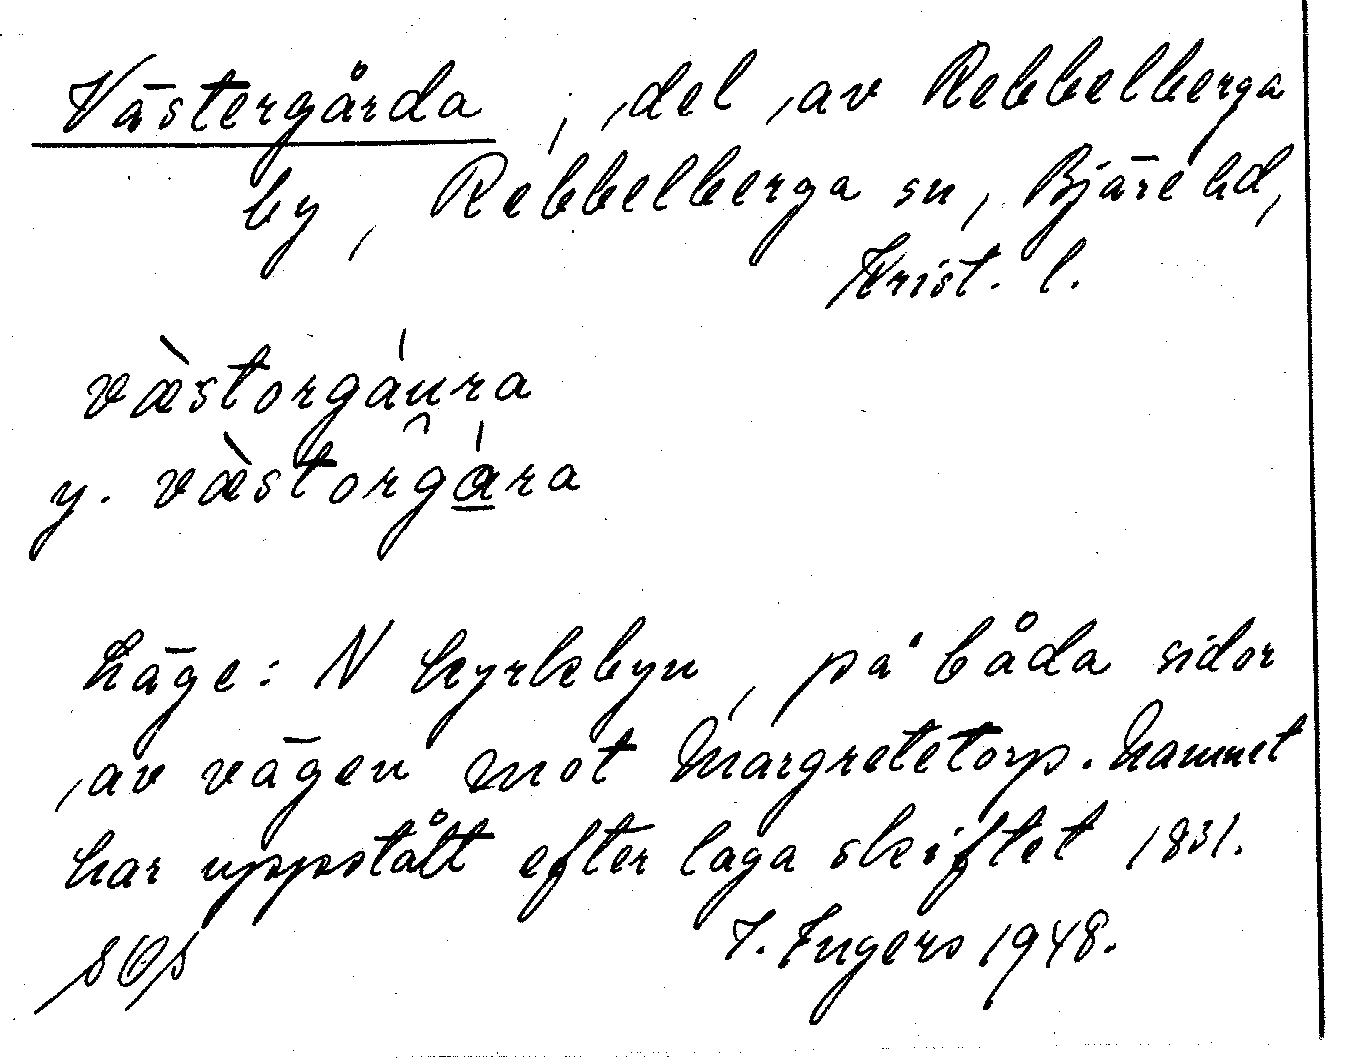 Västergårda, del av Rebbelberga
by, Rebbelberga sn, Bjäre hd,
Krist. l.
væ̀storgáu̯ra
y. væ̀storgá̲ra
Läge: N kyrkbyn, på båda sidor
av vägen mot Margretetorp. Namnet
har uppstått efter laga skiftet 1831.
I. Ingers 1948.